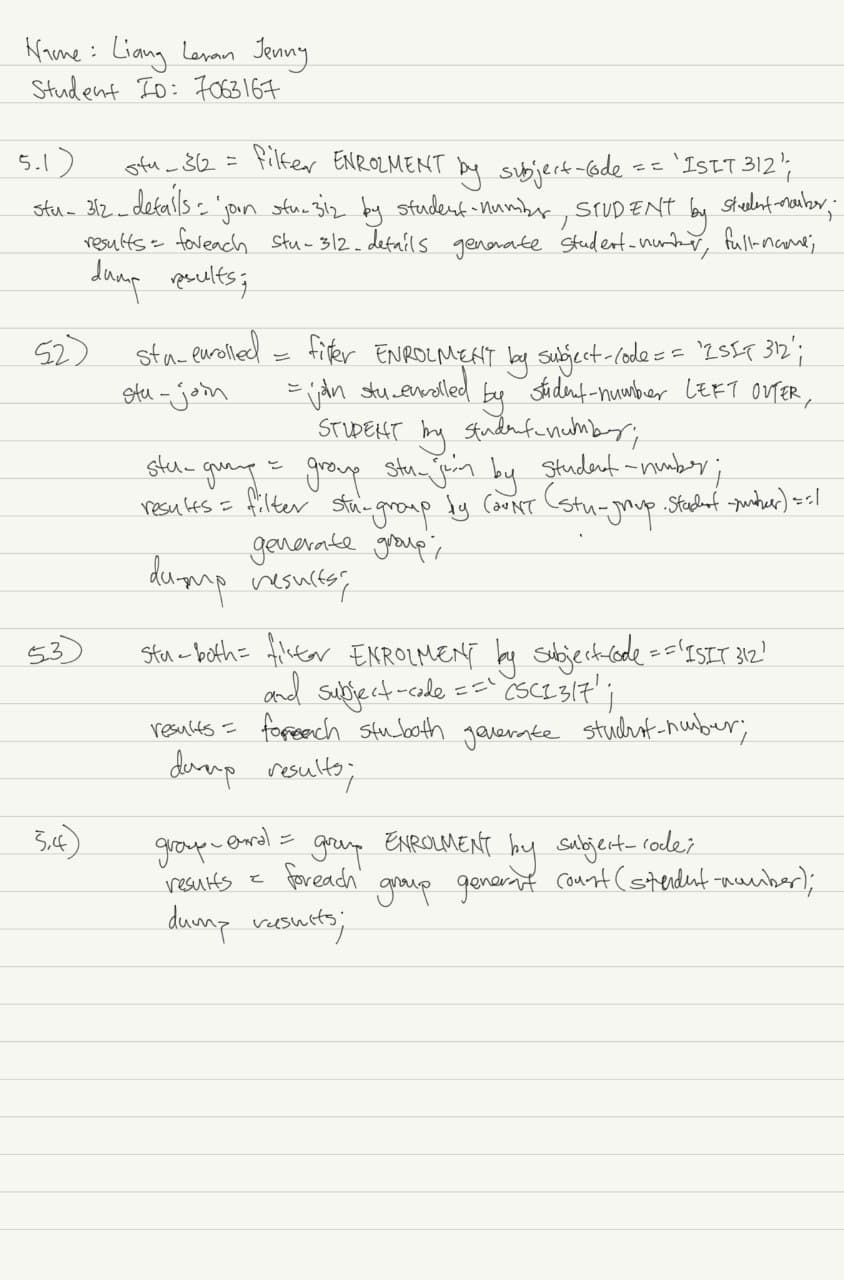 Name : Liang Leran Jenny
Student ID: 7063167
5.1) stu_312 = filter ENROLMENT by subject-code == 'ISIT 312';
stu-312_details = join stu-312 by student-number, STUDENT by student-number;
results = foreach stu-312_details generate student-number, full-name;
dump results;
5.2) stu_enrolled = filter ENROLMENT by subject-code == 'ISIT 312';
stu-join = join stu_enrolled by student-number LEFT OUTER,
STUDENT by student-number;
stu-group = group stu-join by student-number;
results = filter stu-group by COUNT (stu-group.student-number)==1
generate group;
dump results;
5.3) stu-both = filter ENROLMENT by subject-code =='ISIT 312'
and subject-code == 'CSCI317';
results = foreach stu_both generate student-number;
dump results;
5.4) group-enrol = group ENROLMENT by subject-code;
results = foreach group generat count(student-number);
dump results;